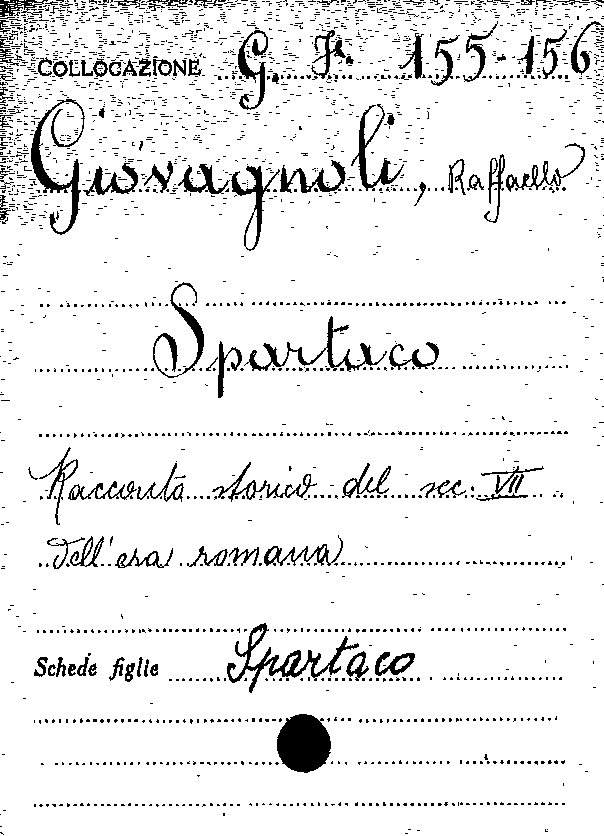 COLLOCAZIONE G. F. 155-156
Giovagnoli, Raffaello
Spartaco
Racconto storico del sec. VII
dell'era romana
Schede figlie Spartaco